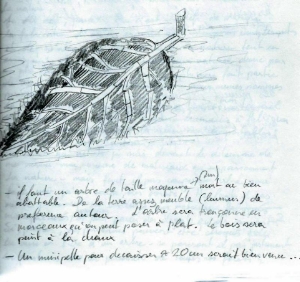 - Il faut un arbre de taille moyenne (2m) mort ou bien
abattable. De la terre assez meuble (humus) de
preference autour. L'arbre sera tronçonné en
morceaux qu'on peut poser à plat. Le bois sera
peint à la chaux
- Un minipelle pour decaisser # 20 cm serait bienvenue...